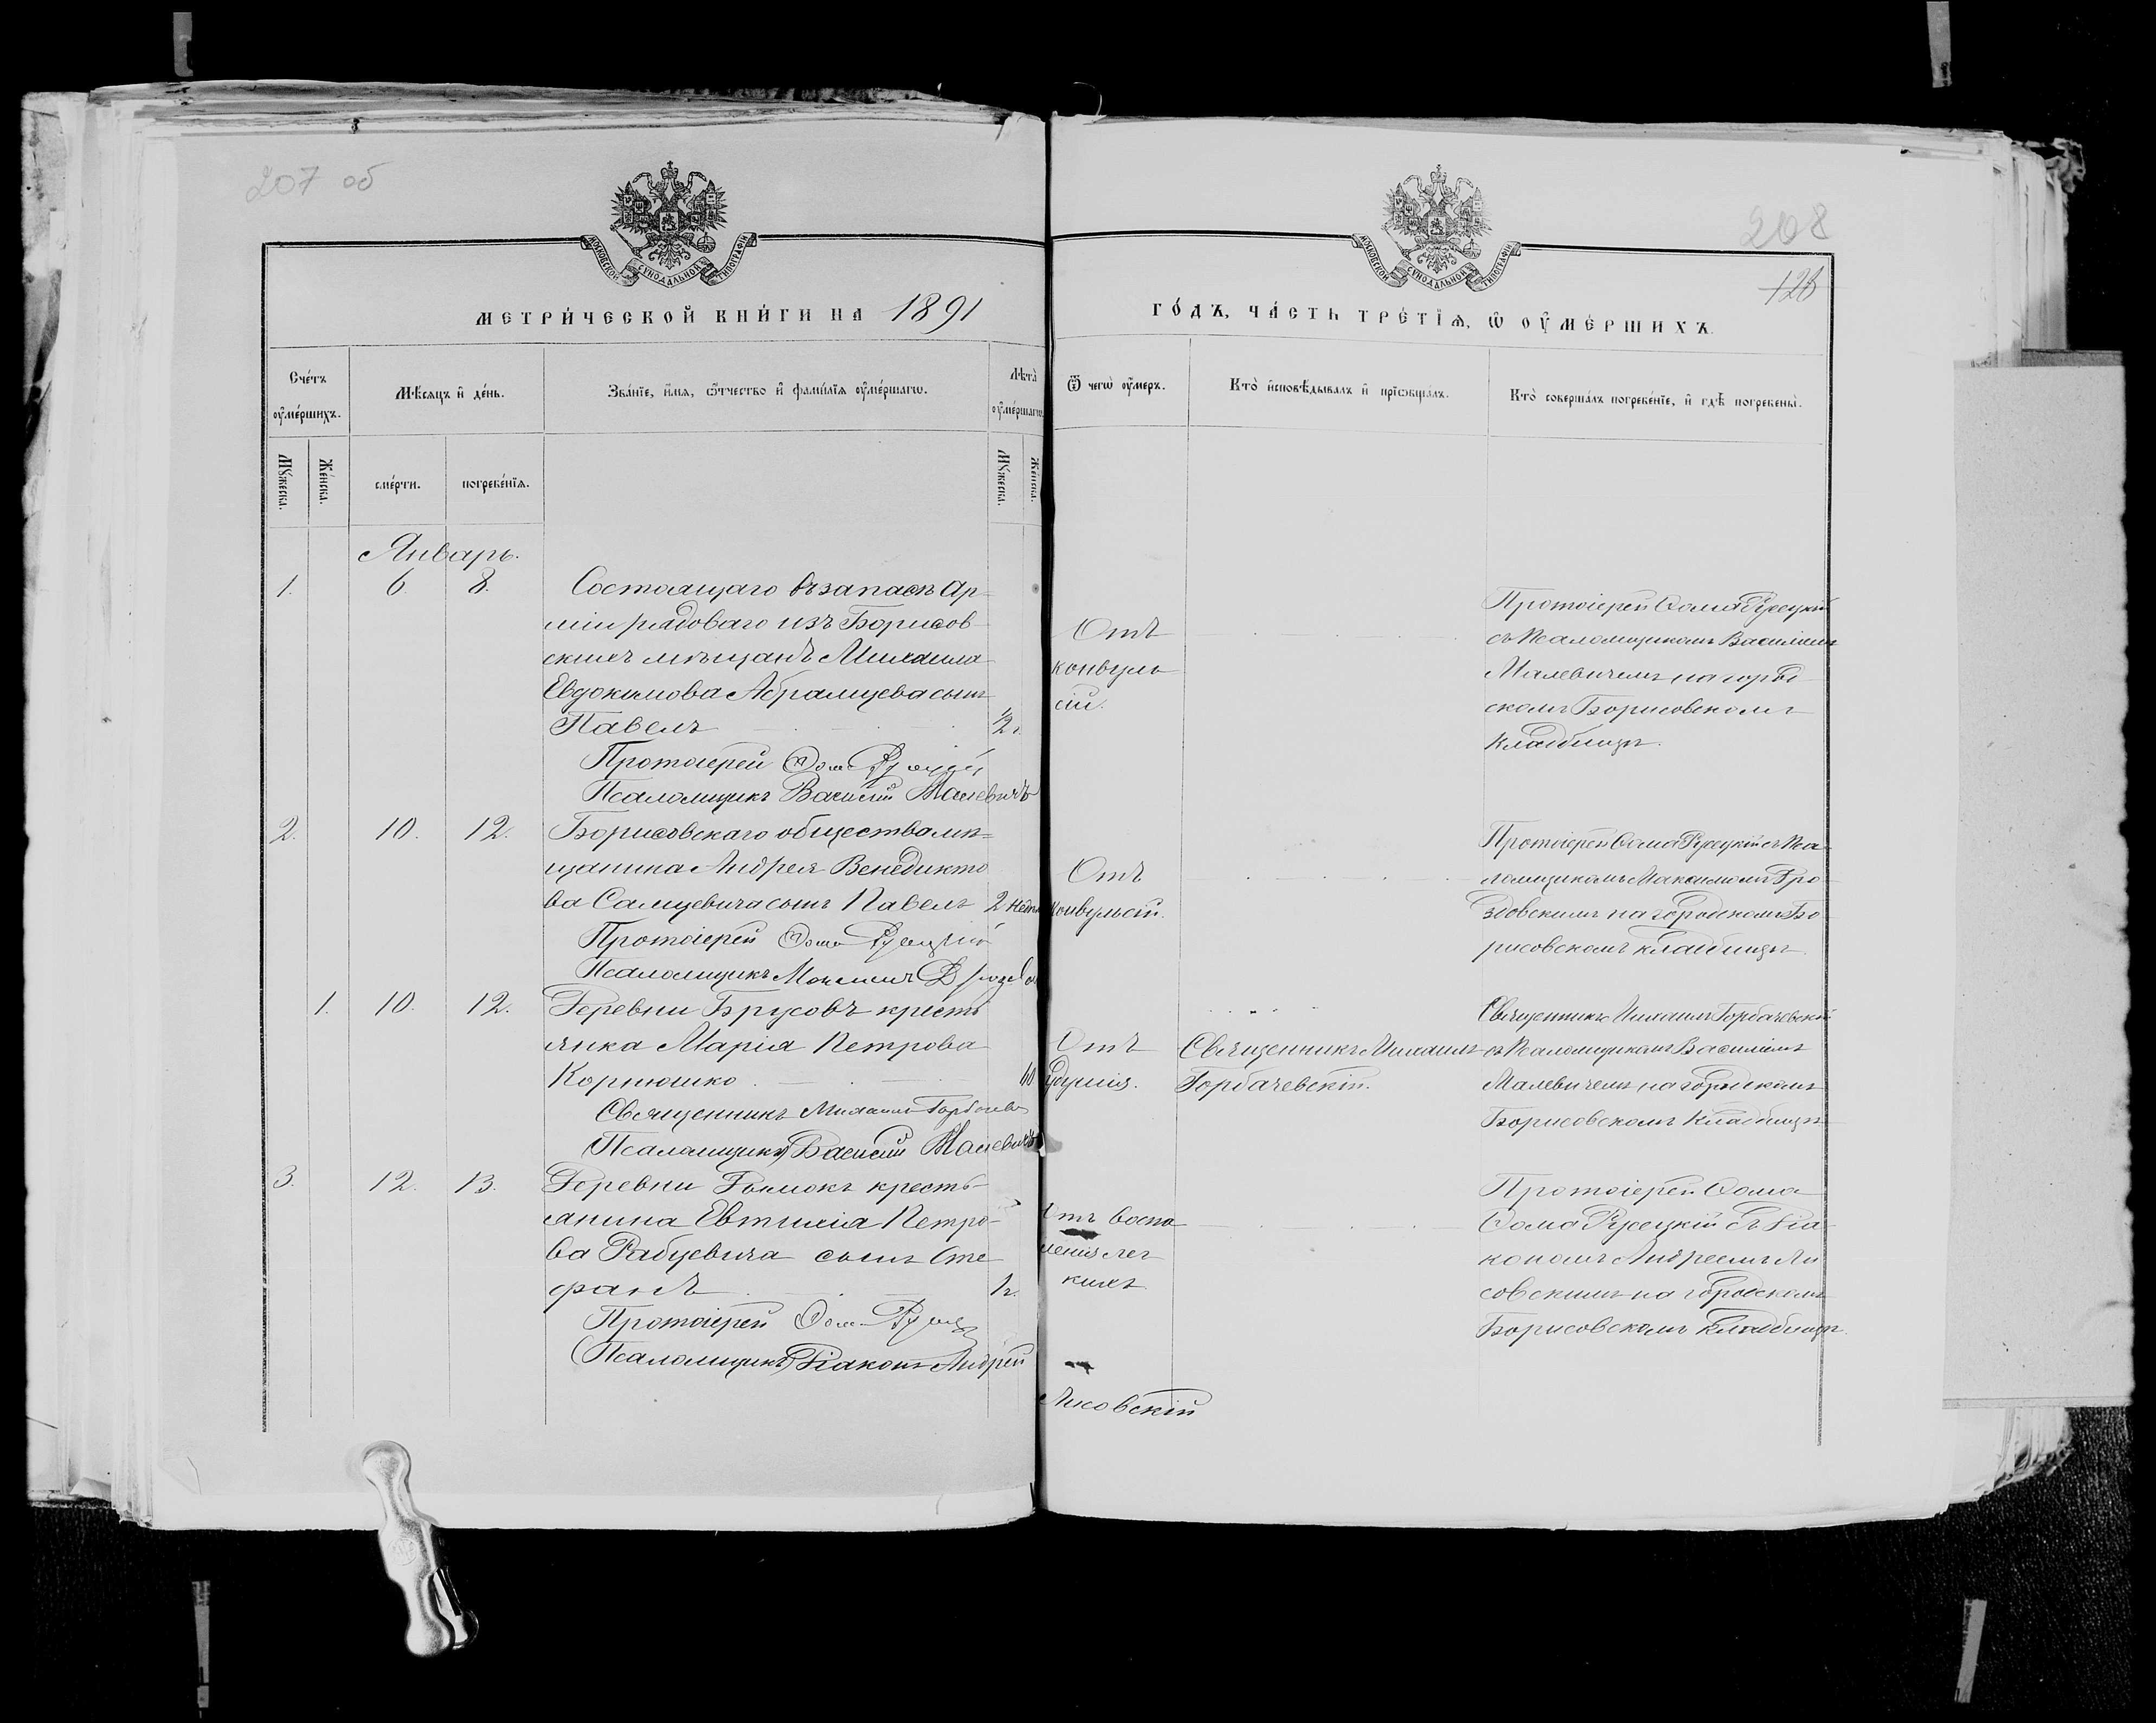 207 об
208
126
МОСКОВСКОЙ СѴНОДАЛЬНОЙ ТИПОГРАФІИ
МОСКОВСКОЙ СѴНОДАЛЬНОЙ ТИПОГРАФІИ
МЕТРИ́ЧЕСКОЙ КНИ́ГИ НА 1891
ГО́ДЪ, ЧА́СТЬ ТРЕ́ТІѦ, Ѡ҆ ОУ҆МЕ́РШИХЪ.
Сче́тъ оу҆ме́ршихъ.
Мѣ́сѧцъ и҆ де́нь.
Зва́нїе, и҆́мѧ, ѻ҆́тчество и҆ фами́лїѧ оу҆ме́ршагѡ.
Лѣ́та оу҆ме́ршагѡ.
Ѿ чегѡ̀ оу҆́меръ.
Кто̀ и҆сповѣ́дывалъ и҆ прїѡбща́лъ.
Кто̀ соверша́лъ погребе́нїе, и҆ гдѣ̀ погребены̀.
Мꙋ́жеска.
Же́нска.
сме́рти.
погребе́нїѧ.
Мꙋ́жеска.
Же́нска.
Январь.
1. 6. 8. Состоящаго въ запасѣ ар-
міи рядоваго изъ Борисов
скихъ мѣщанъ Михаила
Евдокимова Абрамцева сынъ
Павелъ 1/2 г.
Протоіерей Ѳома Русецкій
Псаломщикъ Василій Малевичъ
Отъ
конвуль
сіи.
Протоіерей Ѳома Русецкій
съ Псаломщикомъ Василіемъ
Малевичемъ на город
скомъ Борисовскомъ
Кладбищѣ.
2. 10. 12. Борисовскаго общества мѣ=
щанина Андрея Венедикто
ва Самцевича сынъ Павелъ 2 нед.
Протоіерей Ѳома Русецкій
Псаломщикъ Максимъ
Отъ
Конвульсій.
Протоіерей Ѳома Русецкій съ Пса
ломщикомъ Максимомъ Дро
здовскимъ на городскомъ Бо
рисовскомъ кладбищѣ.
1. 10. 12. Деревни Брусовъ кресть
янка Марія Петрова
Корнюшко 40
Священникъ Михаилъ Горбачевс
Псаломщикъ Василій Малевичъ
Отъ
удушія.
Священникъ Михаилъ
Горбачевскій.
Священникъ Михаилъ Горбачевскій
съ Псаломщикомъ Василіемъ
Малевичемъ на городскомъ
Борисовскомъ Кладбищѣ
3. 12. 13. Деревни Дымокъ кресть-
янина Евтихія Петро-
ва Рабцевича сынъ Сте
фанъ 1 г.
Протоіерей Ѳома Русецкій
Псаломщикъ Діаконъ Андрей
Лисовскій
Отъ воспа
ленія лег
кихъ
Протоіерей Ѳома
Ѳома Русецкій съ Діа
кономъ Андреемъ Ли
совскимъ на городскомъ
Борисовскомъ кладбищѣ